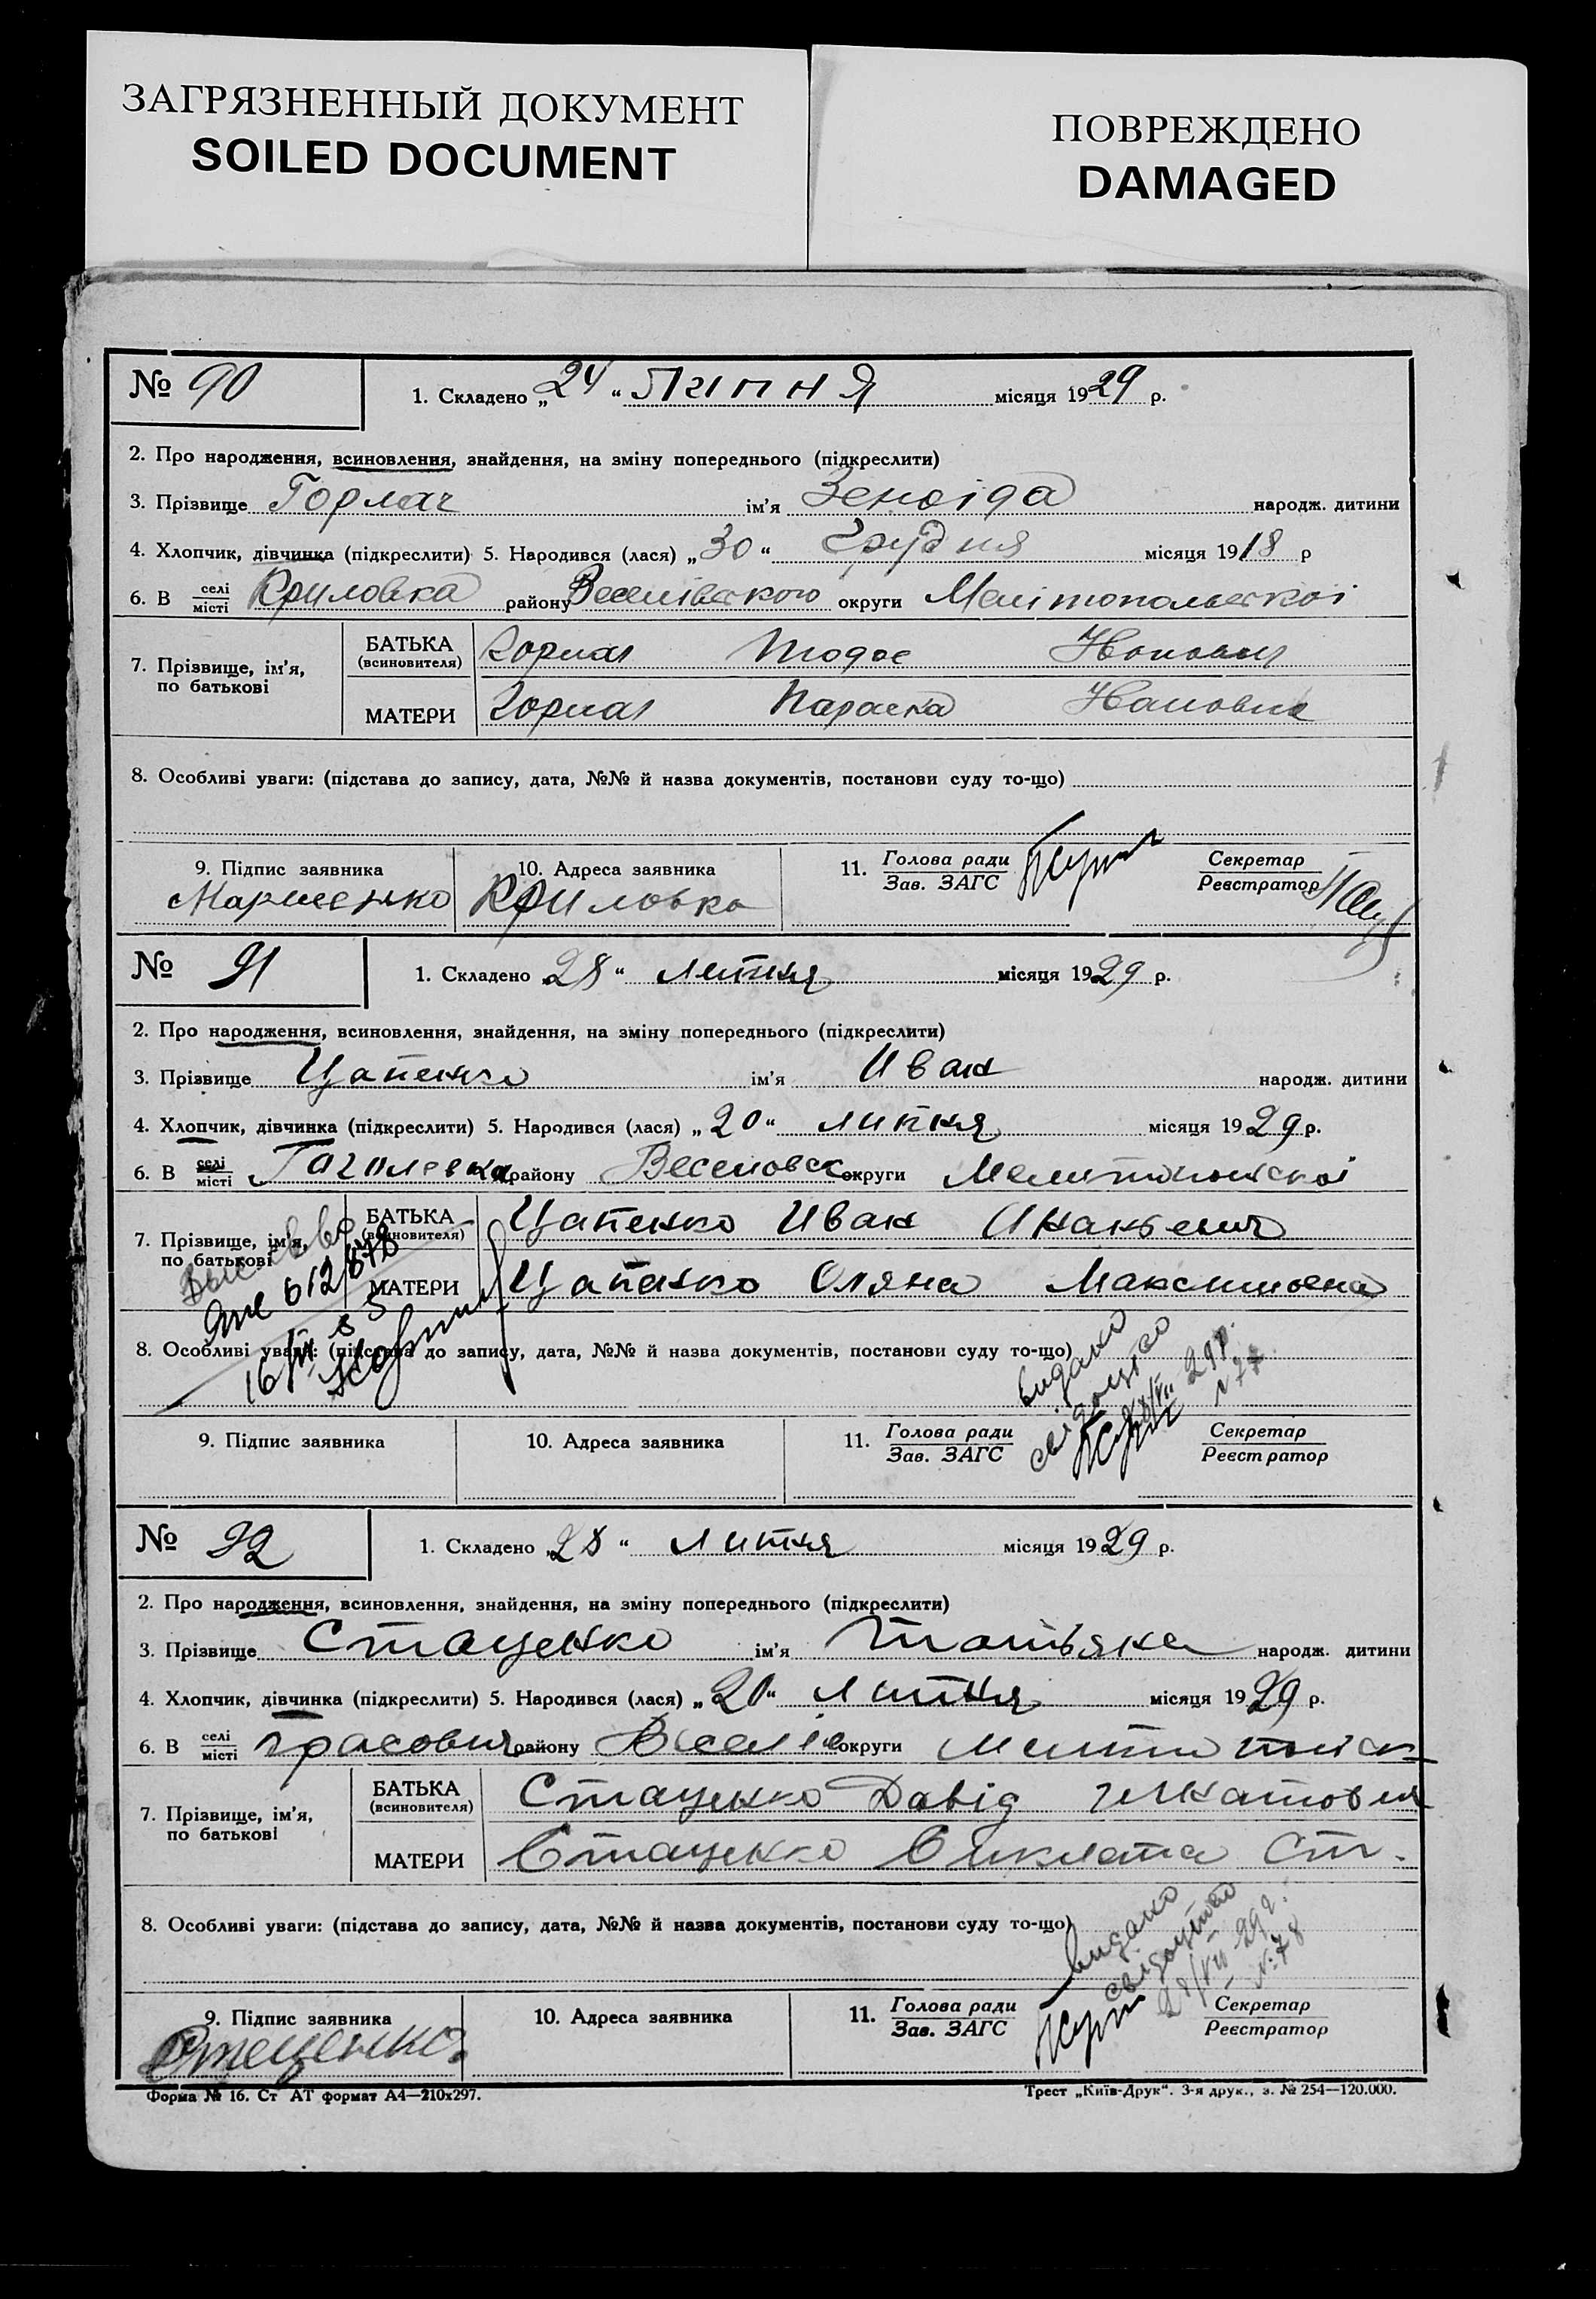 ЗАГРЯЗНЕННЫЙ ДОКУМЕНТ
SOILED DOCUMENT
ПОВРЕЖДЕНО
DAMAGED
№ 90 1. Складено „24“ Липня місяця 1929 р.
2. Про народження, всиновлення, знайдення, на зміну попереднього (підкреслити)
3. Прізвище Горлач ім'я Зеноіда народж. дитини
4. Хлопчик, дівчинка (підкреслити) 5. Народився (лася) „30“ Грудня місяця 1918 р
6. В селі місті Криловка району Веселівского округи Мелітопольскоі
7. Прізвище, ім'я, по батькові
БАТЬКА (всиновителя) Тодос
МАТЕРИ Параска
8. Особливі уваги: (підстава до запису, дата, №№ й назва документів, постанови суду то-що)
9. Підпис заявника 10. Адреса заявника 11. Голова ради Зав. ЗАГС Секретар Реєстратор
Марченко Криловка
№ 91 1. Складено 28“ липня місяця 1929 р.
2. Про народження, всиновлення, знайдення, на зміну попереднього (підкреслити)
3. Прізвище Цапенко ім'я Иван народж. дитини
4. Хлопчик, дівчинка (підкреслити) 5. Народився (лася) „20“ липня місяця 1929 р.
6. В селі місті району Веселовск округи
7. Прізвище, ім'я, по батькові
БАТЬКА (всиновителя) Цапенко Иван
МАТЕРИ Цапенко Оляна Максимовна
612878
16/III 55
8. Особливі уваги: (підстава до запису, дата, №№ й назва документів, постанови суду то-що)
видано
свідоцтво
28/VII 29р.
№77
9. Підпис заявника 10. Адреса заявника 11. Голова ради Зав. ЗАГС Секретар Реєстратор
№ 92 1. Складено „28“ липня місяця 1929 р.
2. Про народження, всиновлення, знайдення, на зміну попереднього (підкреслити)
3. Прізвище Стаценко ім'я Татьяна народж. дитини
4. Хлопчик, дівчинка (підкреслити) 5. Народився (лася) „20“ липня місяця 1929 р.
6. В селі місті району Веселів округи
7. Прізвище, ім'я, по батькові
БАТЬКА (всиновителя) Стаценко Давід
МАТЕРИ Стаценко Ст.
8. Особливі уваги: (підстава до запису, дата, №№ й назва документів, постанови суду то-що)
видано
свідоцтво
28/VII 29р.
№78
9. Підпис заявника 10. Адреса заявника 11. Голова ради Зав. ЗАГС Секретар Реєстратор
Стеценко
Форма № 16. Ст АТ формат А4—210х297. Трест „Київ-Друк“. 3-я друк., з. № 254—120.000.